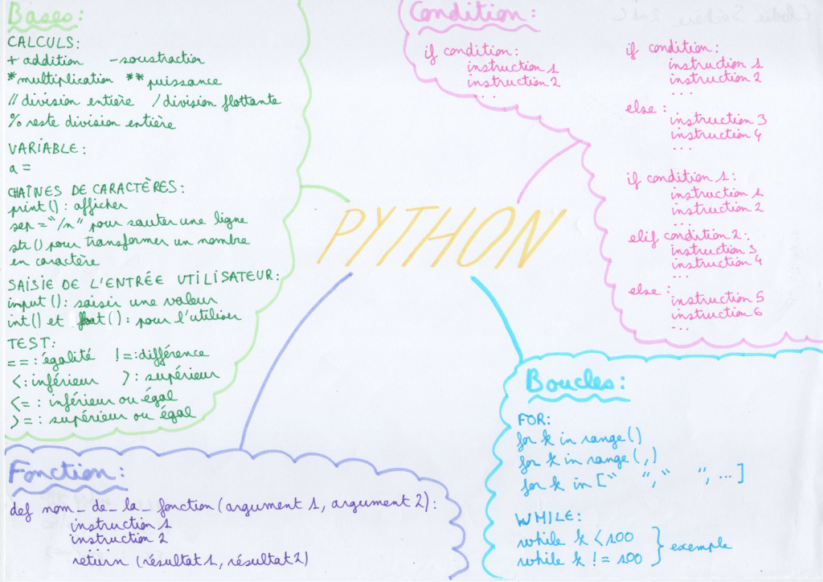 Bases:
CALCULS:
+ addition - soustraction
* multiplication ** puissance
// division entière / division flottante
% reste division entière
VARIABLE:
a =
CHAÎNES DE CARACTÈRES:
print(): afficher
sep = "/n" pour sauter une ligne
str() pour transformer un nombre
en caractère
SAISIE DE L'ENTRÉE UTILISATEUR:
input(): saisir une valeur
int() et float(): pour l'utiliser
TEST:
==: égalité !=: différence
<: inférieur >: supérieur
<=: inférieur ou égal
>=: supérieur ou égal
PYTHON
Condition:
if condition:
instruction 1
instruction 2
...
if condition:
instruction 1
instruction 2
...
else:
instruction 3
instruction 4
...
if condition 1:
instruction 1
instruction 2
...
elif condition 2:
instruction 3
instruction 4
...
else:
instruction 5
instruction 6
...
Fonction:
def nom_de_la_fonction(argument 1, argument 2):
instruction 1
instruction 2
return (résultat 1, résultat 2)
Boucles:
FOR:
for k in range()
for k in range(,)
for k in [" "," ",...]
WHILE:
while k < 100
while k != 100
} exemple